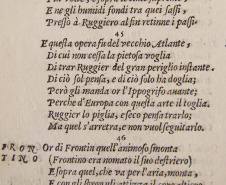 E ne gli humidi fondi tra quei sassi,
Presso à Ruggiero al fin ritinne i passi.
45
E questa opera fu del vecchio Atlante,
Di cui non cessa la pietosa voglia
Di trar Ruggier del gran periglio instante.
Di ciò sol pensa, e di ciò solo ha doglia;
Però gli manda or l'Ippogrifo auante;
Perche d'Europa con questa arte il toglia.
Ruggier lo piglia, e seco pensa trarlo;
Ma quel s'arretra, e non vuol seguitarlo.
46
FRON Or di Frontin quell'animoso smonta
TINO. (Frontino era nomato il suo destriero)
E sopra quel, che va per l'aria, monta,
E con gli spron